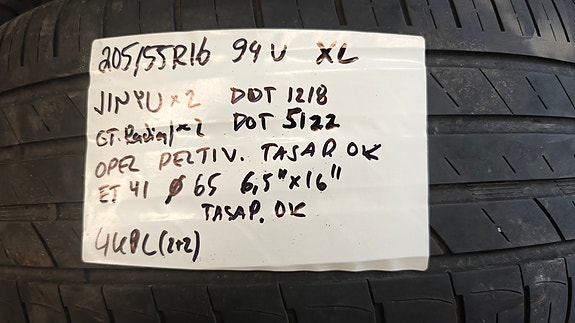 205/55R16 94U XL
JINYU x2 DOT 1218
GT.Radial x2 DOT 5122
OPEL PELTIV. TASAP. OK
ET 41 ø 65 6,5" x 16"
TASAP. OK
4KPL (2+2)